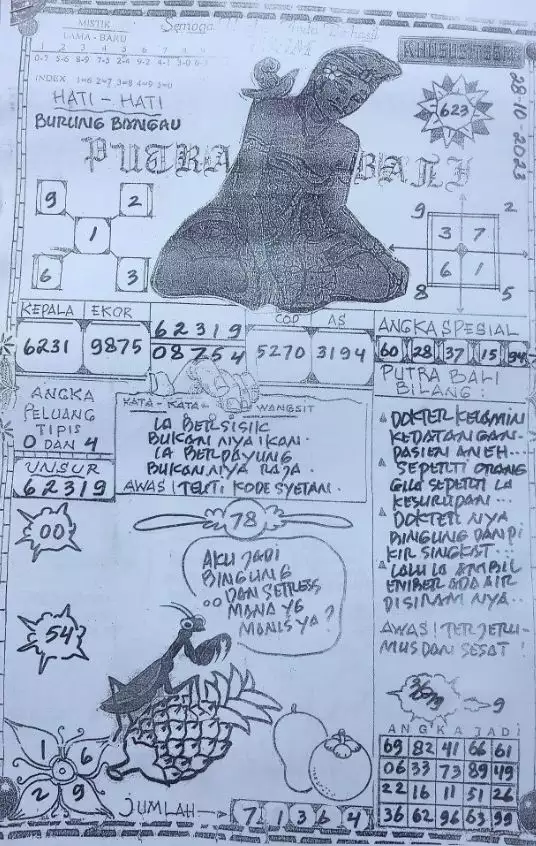 MISTIK
LAMA - BARU
Semoga Anda Berhasil
1 2 3 4 5 6 7 8 9
INDEX 1=6 2=7 3=8 4=9 5=0
28-10-2023
HATI - HATI
BURUNG BANGAU
623
PUTRA BALI
9 2
1
6 3
9 2
3 7
6 1
8 5
KEPALA EKOR
6231 9875
62319
08754
COP AS
5270 3194
ANGKA SPESIAL
60 28 37 15 94
ANGKA
PELUANG
TIPIS
0 DAN 4
UNSUR
62319
KATA - KATA - WANGSIT
IA BERSISIK
BUKAN NYA IKAN.
IA BERPAYUNG
BUKAN NYA RAJA.
AWAS! TELITI KODE SYETAN.
PUTRA BALI
BILANG:
DOKTER KELAMIN
KEDATANGAN
PASIEN ANEH...
SEPERTI ORANG
GILA SEPERTI LA
KESURUPAN...
DOKTER NYA
BINGUNG DAN PI
KIR SINGKAT...
LALU IA AMBIL
EMBER ADA AIR
DISIRAM NYA..
AWAS! TERJERU-
MUS DAN SESAT!
00
54
78
AKU JADI
BINGUNG
DAN SETRESS
MANA YG
MANIS YA?
1 6
2 9
JUMLAH
7 1 3 6 4
9
ANGKA JADI
69 82 41 66 61
06 33 73 89 49
22 16 11 51 26
36 62 96 63 99